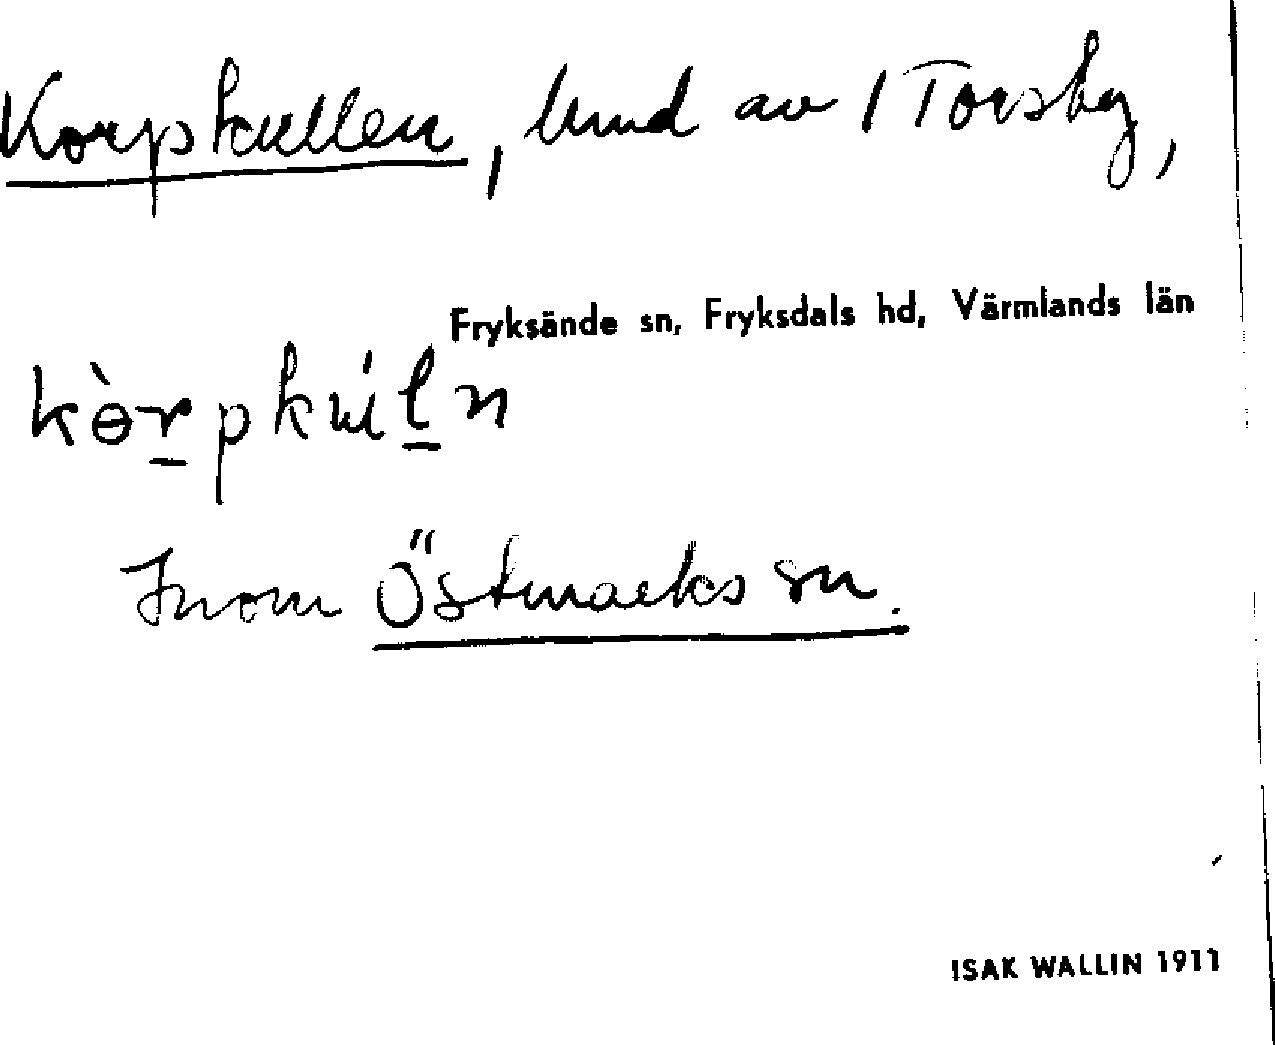 Korpkullen, lund av 1 Torsby,
Fryksände sn, Fryksdals hd, Värmlands län
kɵ̀r̲pkúl̲n
Inom Östmarks sn.
ISAK WALLIN 1911